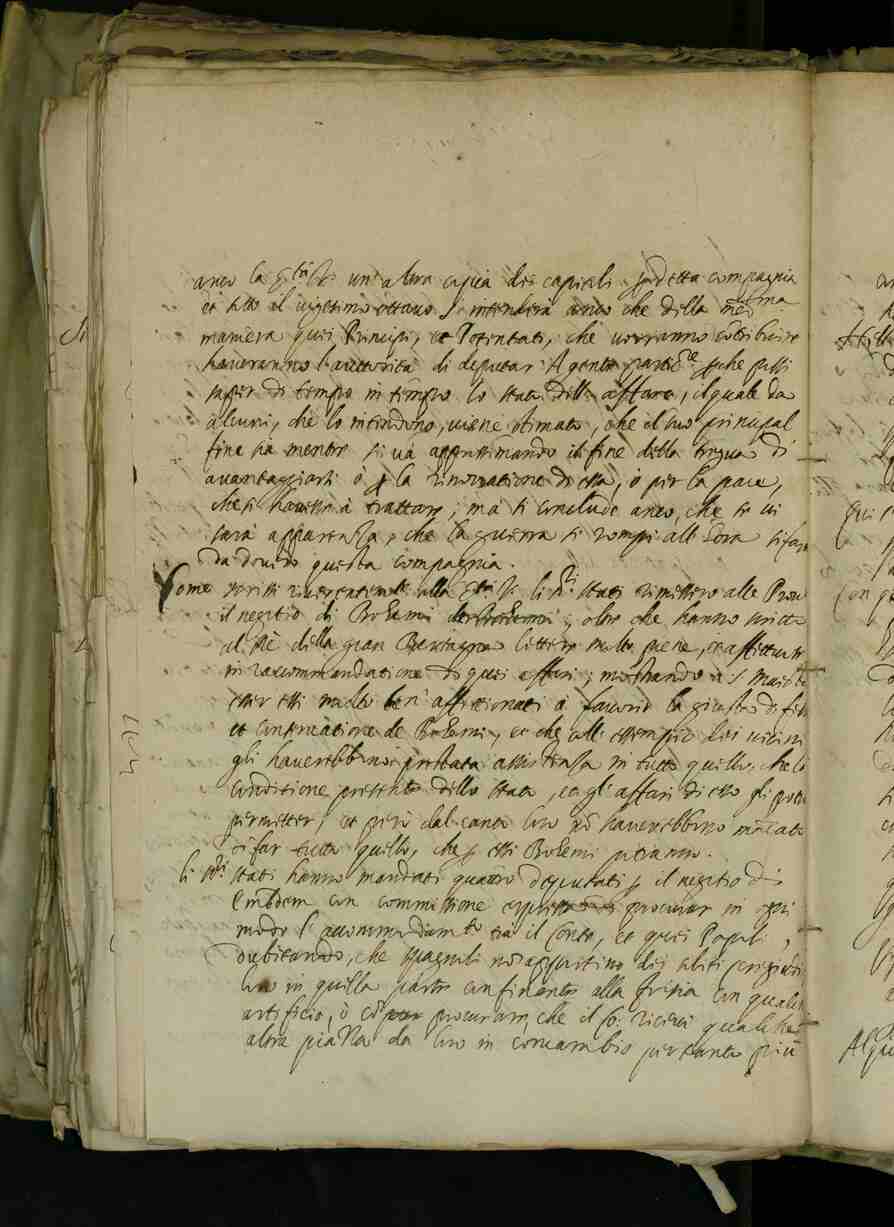 anco la S.tà V.a un'altra copia dei capitoli sudetta compagnia
et sotto il vigesimo ottavo s'intenderà anco che della med.ma
maniera quei Principi, et Potentati, che vorranno cõtribuire
haveranno l'auttorità di deputar Agente partic.re che possi
saper di tempo in tempo lo stato dell' affare, il quale da
alcuni, che lo intendono, viene stimato, che il suo principal
fine sia mentre si và approssimando il fine della tregua di
avantaggiarsi ò per la rinovatione di essa, ò per la pace,
che si havesse à trattare; mà si conclude anco, che se vi
sarà apparenza, che la guerra si rompi all' hora si farà
da dovero questa compagnia.
Come scrissi riverentemente alla S.tà V.a li ss.ri stati rimissero alle Prov
il negotio di Bohemi ; oltre che hanno scritto
al Rè della gran Bertagna lettere molto piene, et affettuose
in raccommandatione di quei affari; mostrando à S. Maestà
esser essi molto ben' affettionati à favorir la giusta difesa
et conservatione de Bohemi, et che all' essempio dei vicini
gli haverebbono prestata assistenza in tutto quello, che la
conditione presente dello stato, et gli affari di esso gli potea
permetter, et però dal canto loro nõ haverebbono mãcato
di far tutto quello, che per essi Bohemi potranno.
li ss.ri stati hanno mandati quattro deputati per il negotio di
Embdem con commissione di procurar in ogni
modo l'accommodam.to trà il Conte, et quei Popoli,
dubitando, che spagnoli non apportino dei soliti pregiuditij
loro in quella parte confinante alla Frisia con qualche
artificio, ò procurare, che il Co: ricevi qualche
altra piazza da loro in contracambio per tanto più